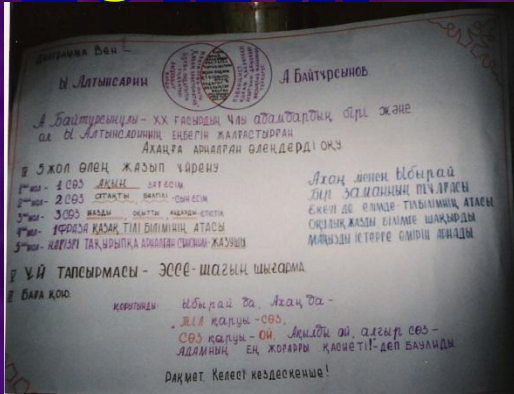 Диаграмма Венн –
Ы. Алтынсарин А Байтұрсынов
А. Байтұрсынұлы – ХХ ғасырдың ұлы адамдардың бірі және
ол Ы. Алтынсариннің еңбегін жалғастырған
Ахаңға арналған өлеңдерді оқу
5 жол өлең жазып үйрену
1 сөз ақын зат есім
2 сөз атақты сын есім
3 сөз жазды оқытты етістік
1 фраза қазақ тілі білімінің атасы
тақырыпқа арналған синоним – жазушы
Ахаң менен Ыбырай
Бір заманның тұлғасы
Екеуі де елімде – тілбілімнің атасы
Оқулық жазды, білімге шақырды
Маңызды істерге өмірін арнады
Үй тапсырмасы – эссе – шағын шығарма
Баға қою.
Қорытынды: Ыбырай да, Ахаң да –
Тіл қаруы – сөз,
Сөз қаруы – ой. Ақылды ой, алғыр сөз –
адамның ең жоғарғы қасиеті! – деп баулиды
Рақмет. Келесі кездескенше!